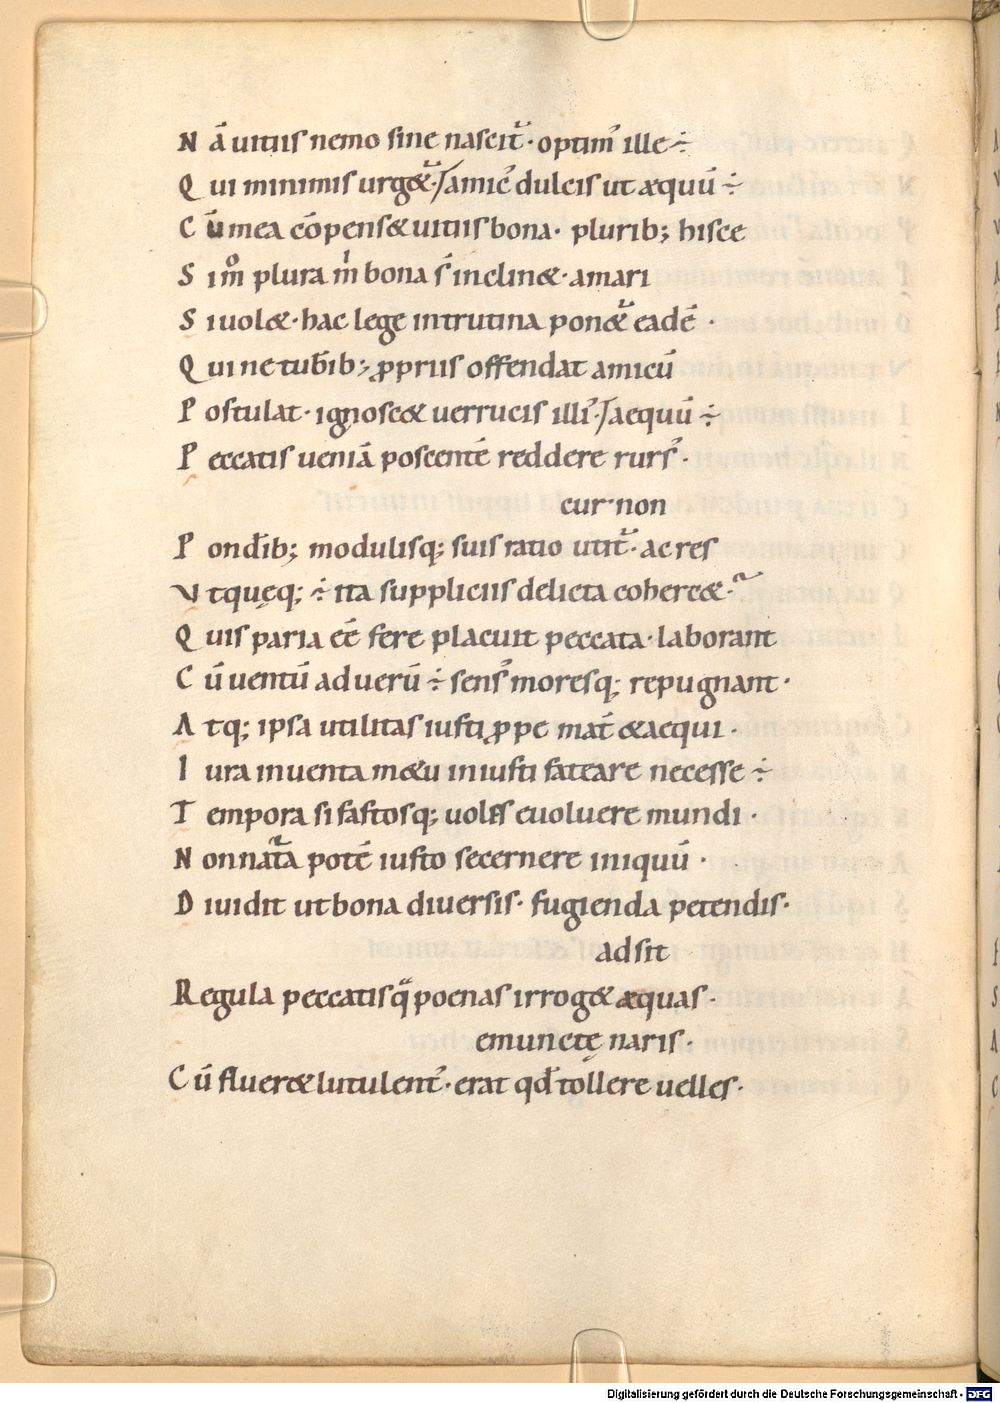 N ā uitiis nemo sine nascit᷑· optim᾿ ille ÷
Q ui minimis urget᷑·/ amic᾿ dulcis ut æquū ÷
C ū mea cōpenset uitiis bona· plurib; hisce
S i m̊ plura m̍ bona s̄ inclinet· amari
S i uolet· hac lege in trutina ponet᷑ eadē ·
Q ui ne tub̄ib; ꝓpriis offendat amicū
P ostulat· ignoscet uerrucis illi᾿·/ aequū ÷
P eccatis ueniā poscentē reddere rurs᾿·
cur· non
P ond̄ib; modulisq; suis ratio utit᷑· ac res
V tquęq; ÷ ita suppliciis delicta cohercet·᷑
Q uis paria eē fere placuit peccata· laborant
C ū uentū ad uerū ÷ sens᾿ moresq; repugnant·
A tq; ipsa utilitas iusti ꝓpe mat̄ & aequi·
I ura inuenta metu iniusti fateare necesse ÷
T empora si fastosq; uolis euoluere mundi·
N on nat᷑a potē iusto secernere iniquū ·
D iuidit ut bona diuersis· fugienda petendis·
adsit
Regula peccatis q̄ poenas irroget æquas·
emunctę naris·
C ū flueret lutulent᾿· erat qđ tollere uelles·
Digitalisierung gefördert durch die Deutsche Forschungsgemeinschaft - DFG